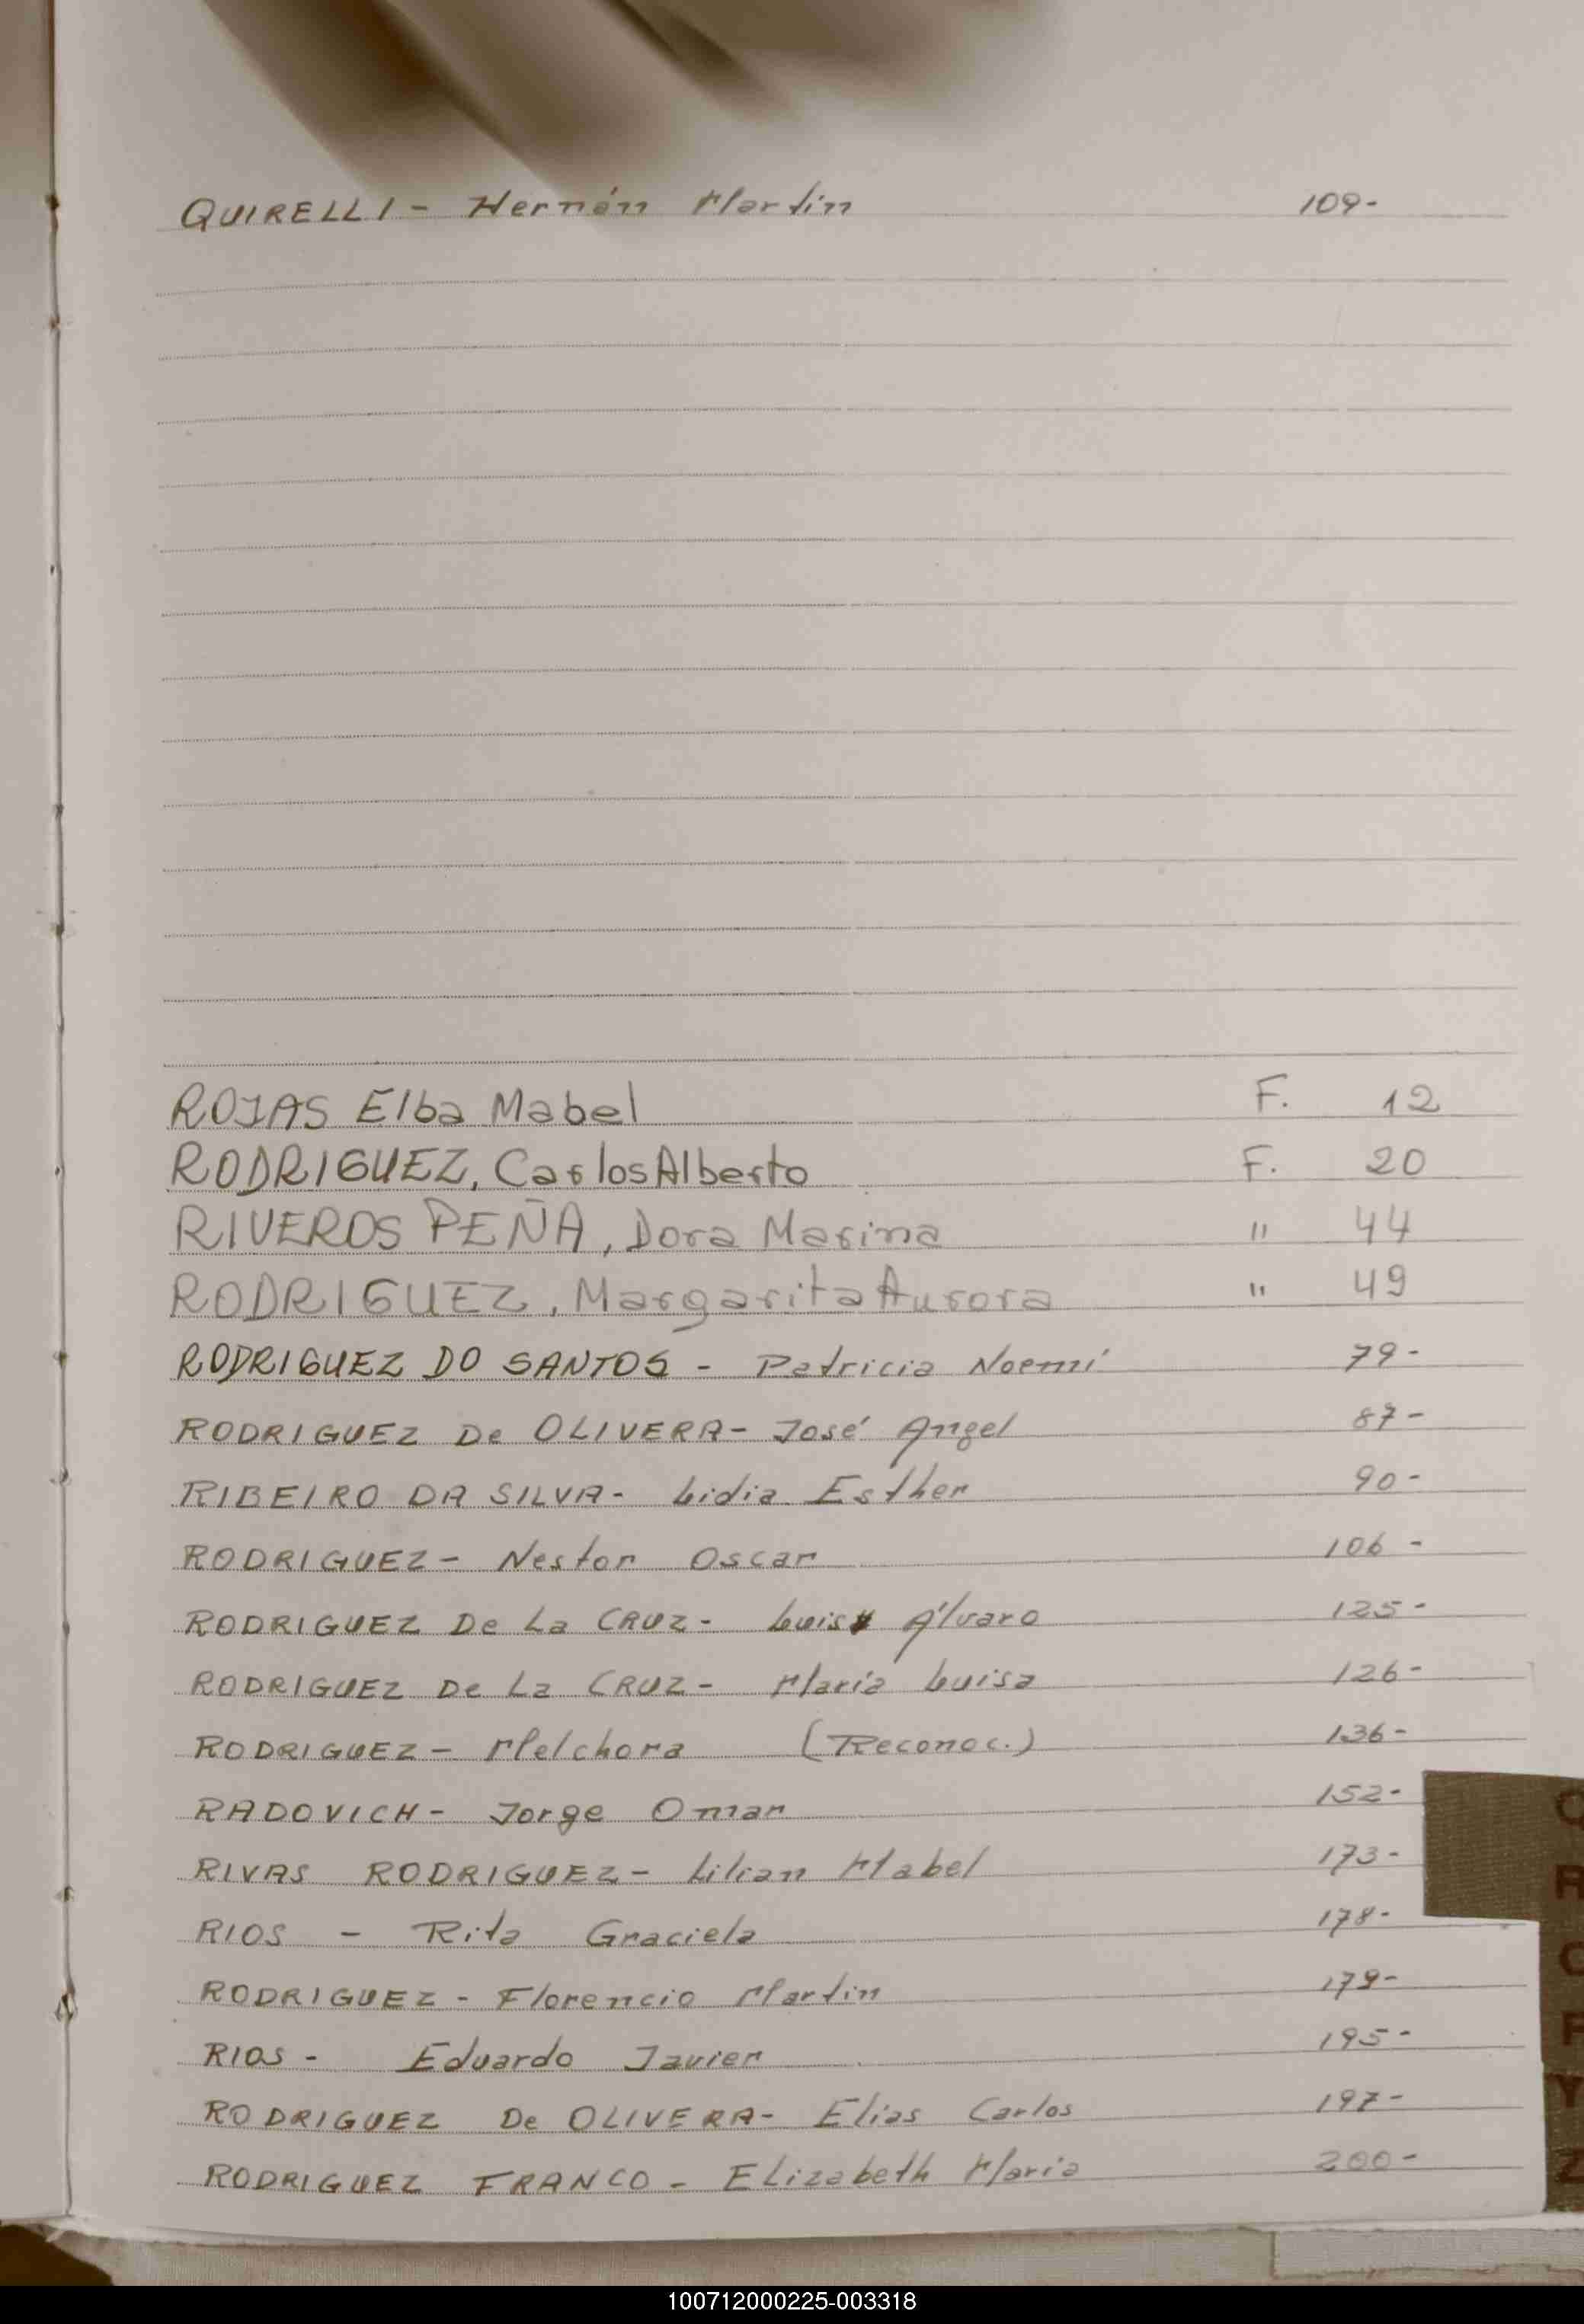 QUIRELLI - Hernán Martin 109-
ROJAS Elba Mabel F. 12
RODRIGUEZ, Carlos Alberto F. 20
RIVEROS PEÑA, Dora Marina " 44
RODRIGUEZ, Margarita Aurora " 49
RODRIGUEZ DO SANTOS - Patricia Noemí 79-
RODRIGUEZ De OLIVERA - José Angel 87-
RIBEIRO DA SILVA - Lidia Esther 90-
RODRIGUEZ - Nestor Oscar 106 -
RODRIGUEZ De La CRUZ - Luis Álvaro 125-
RODRIGUEZ De La CRUZ - María Luisa 126-
RODRIGUEZ - Melchora (Reconoc.) 136-
RADOVICH - Jorge Omar 152-
RIVAS RODRIGUEZ - Lilian Mabel 173-
RIOS - Rita Graciela 178-
RODRIGUEZ - Florencio Martin 179-
RIOS - Eduardo Javier 195-
RODRIGUEZ De OLIVERA - Elias Carlos 197-
RODRIGUEZ FRANCO - Elizabeth María 200-
Q
R
Y
Z
100712000225-003318